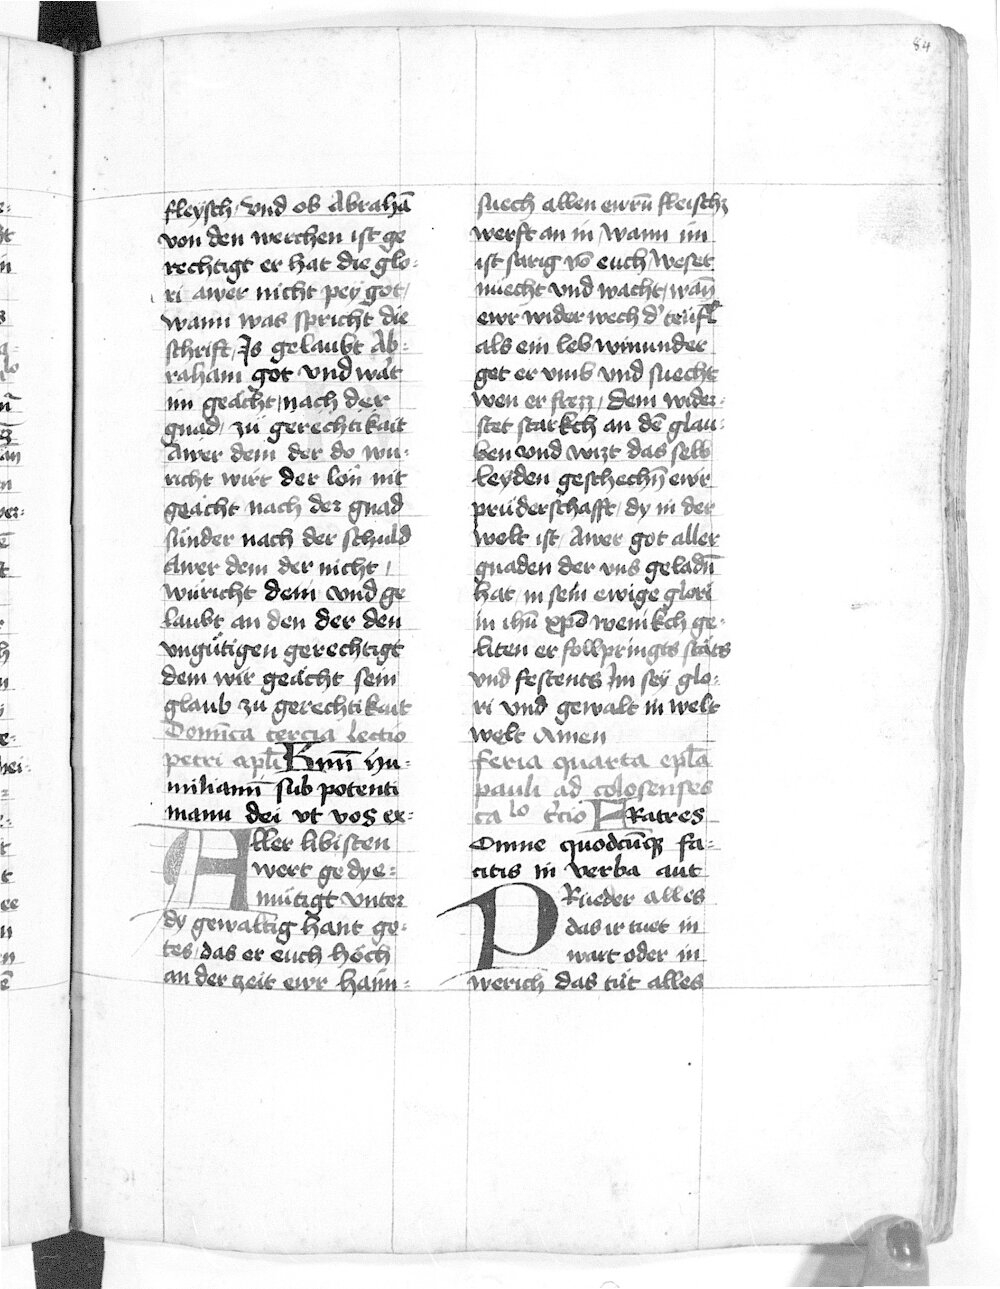 84
fleysch / vnd ob Abrahā
von den werchen ist ge
rechtigt er hat die glo-
ri awer nicht pey got /
wann was spricht die
schrift / Js gelaubt Ab-
raham got vnd wāt
im geacht / nach der
gnad / zu gerechtikait
Awer dem der do wu-
richt wirt der lon nit
geacht nach der gnad
sunder nach der schuld
Awer dem der nicht /
wuricht dem vnd ge
laubt an den der den
vngütigen gerechtigt
dem wir geacht sein
glaub zu gerechtikait
Domīca tercia lectio
petri apłi Kmi hu-
miliamī sub potenti
manu dei vt vos ex-
Aller libisten
wert gedye-
mütigt vnter
dy gewaltig hant go-
tes / das er euch höch
an der zeit ewr haim-
suech allen ewrn fleischz
werft an in / wann im
ist sarig võ euch / weset
nuecht vnd wacht / wañ
ewr widerwech d' teüfl
als ein leb winunder
get er vmb vnd suecht
wen er frezz / dem wider-
stet starkch an dē glau-
ben vnd wizt das selb
leyden geschechn ewr
prüderschafft / dy in der
welt ist / Awer got aller
gnaden der vns geladn̄
hat / in sein ewige glori
in ihū xp̄o wenikch ge-
liten er follpringts stats
vnd festents Jm sey glo-
ri vnd gewalt in welt
welt Amen
feria quarta epłā
pauli ad colosenses
ca lo t'cio FRatres
Omne quodcūq fa-
citis in verba aut
PRueder alles
das ir tuet in
wart oder in
werich das tut alles